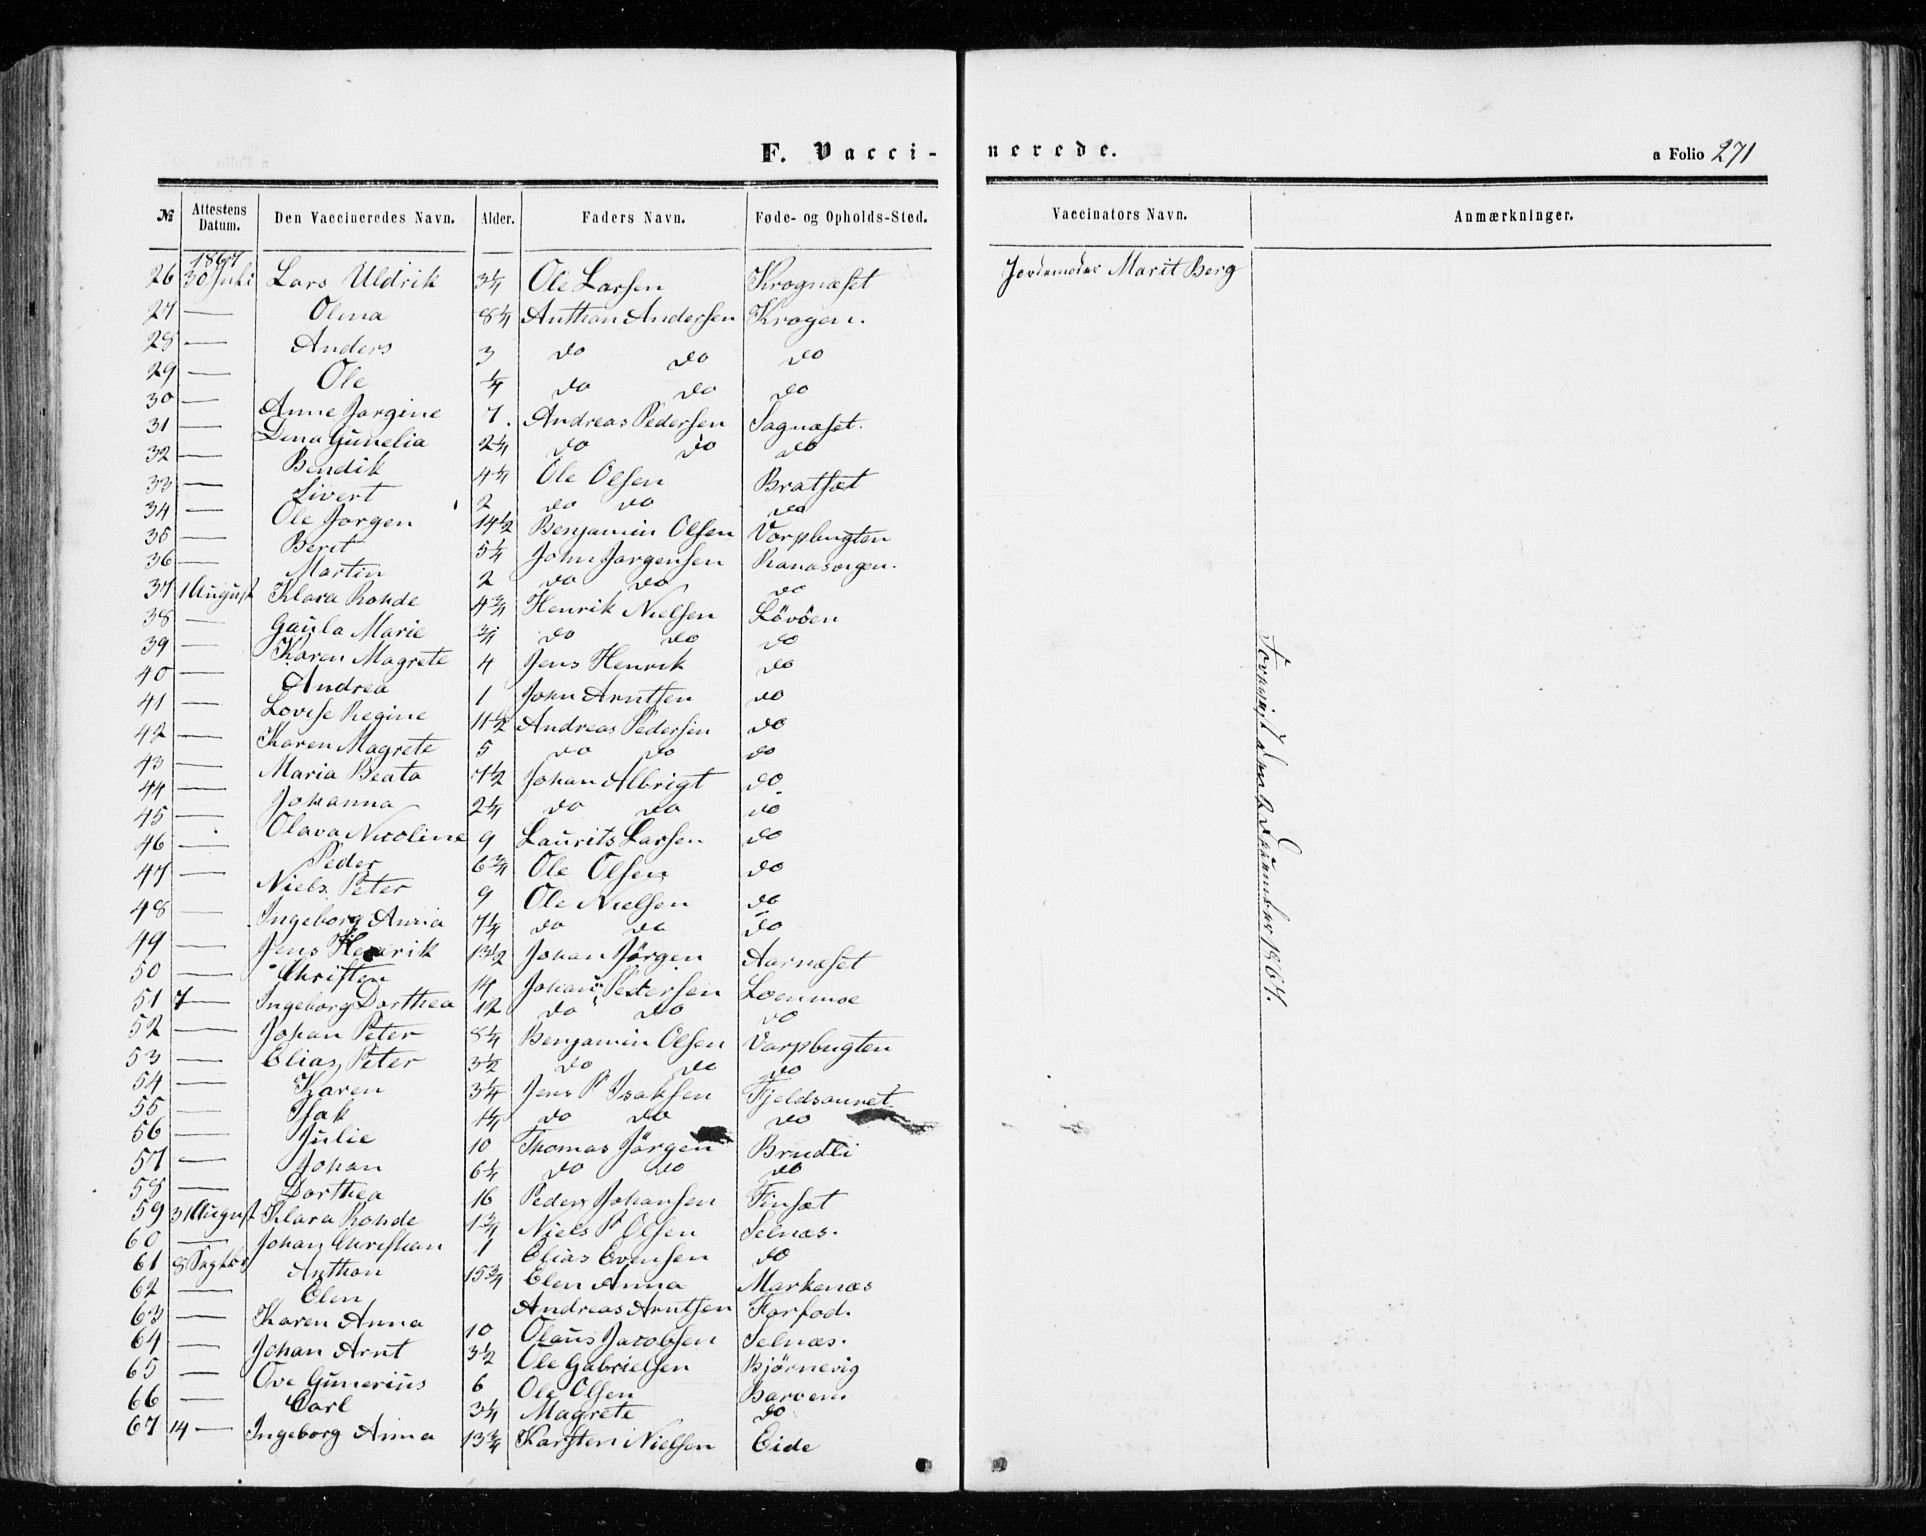 F. Vacci-nerede.
a Folio 271
№ Attestens Datum. Den Vaccineredes Navn. Alder. Faders Navn. Føde- og Opholds-Sted. Vaccinators Navn. Anmærkninger.
1867
26 30 Juli Lars Uldrik 3 1/4 Ole Larsen Krognæset Jordemoder Marit Berg
27 — Olina 8 1/4 Anthon Andersen Krogen.
28 — Anders 3 do do do
29 — Ole 1/4 do do do
30 — Anne Jørgine 7. Andreas Pedersen Sagnæset.
31 — Lena Gunelia 2 1/4 do do do
32 — Bendik 4 3/4 Ole Olsen Bratsæt
33 — Sivert 2 do do do
34 — Ole Jørgen 14 1/2 Benjamin Olsen Varpbugten
35 — Berit 5 1/4 John Jørgensen
36 — Martin 2 do do do
37 1 August Klara Rohde 4 3/4 Henrik Nielsen Løvöen
38 — Gaula Marie 3/4 do do do
39 — Karen Magrete 4 Jens Henrik do
40 — Andrea 1 John Arntsen do
41 — Lovise Regine 11 1/2 Andreas Pedersen do
42 — Karen Magrete 5 do do do
43 — Maria Beata 7 1/2 Johan Albrigt do
44 — Johanna 2 1/4 do do do
45 Olava Nicoline 9 Laurits Larsen do
46 — Peder 6 3/4 Ole Olsen do
47 — Niels Peter 9 Ole Nielsen do
48 — Ingeborg Anna 7 1/4 do do do
49 — Jens Henrik 13 1/2 Johan Jörgen Aarnæset
50 — Christen 14 Johan Pedersen Loenmoe
51 7 — Ingeborg Dorthea 12 do do do
52 — Johan Peter 8 1/4 Benjamin Olsen Varpbugten
53 — Elias Peter 3 1/2 do do do
54 — Karen 3 1/4 Jens P Isaksen Fjeldsaunet
55 — Isak 1 1/4 do do do
56 — Julie 10 Thomas Jörgen Brudli
57 — Johan 6 1/4 do do do
58 — Dorthea 16 Peder Johansen Finsæt
59 31 August Klara Rohde 1 3/4 Niels P Olsen Selnæs.
60 — Johan Christian 1 Elias Evensen do
61 8 Septbr Anthon 15 3/4 Elen Anna Markenæs
62 — Elen Andreas Arntsen
63 — Karen Anna 10 Olaus Jacobsen Selnæs.
64 — Johan Arnt 3 1/2 Ole Gabrielsen Bjørnevig
65 — Ove Gunerius 6 Ole Olsen
66 — Carl 3 1/4 Magrete do
67 14 — Ingeborg Anna 13 3/4 Karsten Nielsen Eide
December 1867.